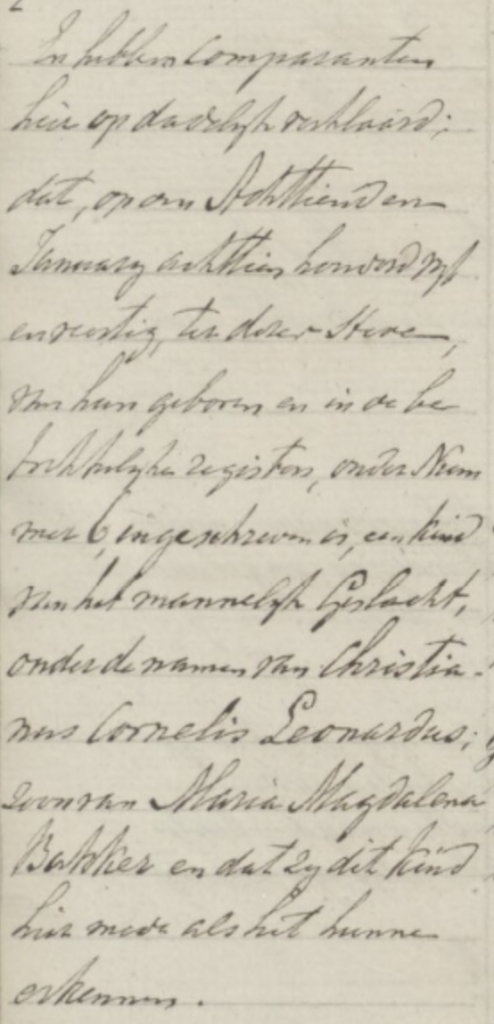 En hebben comparanten
hier op dadelijk verklaard;
dat, op den Achttienden
January achttien honderd vyf
en veertig, ter dezer Stede,
van hun geboren en in de be
trekkelyke registers, onder Num
mer 6, ingeschreven is, een kind
van het mannelyk Geslacht,
onder de namen van Christia-
nus Cornelis Leonardus;
zoon van Maria Magdalena
Bakker en dat zy dit kind
hier mede als het hunne
erkennen.